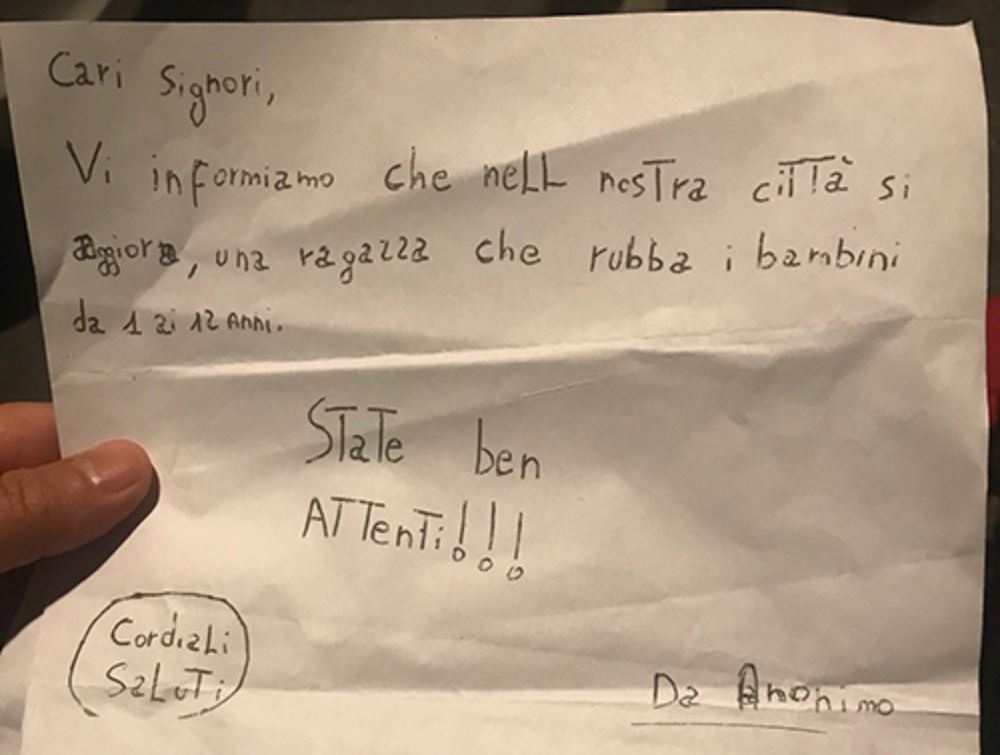 Cari Signori,
Vi informiamo che nell nostra città si
aggiora, una ragazza che rubba i bambini
da 1 ai 12 Anni.
State ben
ATTenTi!!!
Cordiali
SaLuTi
Da Anonimo